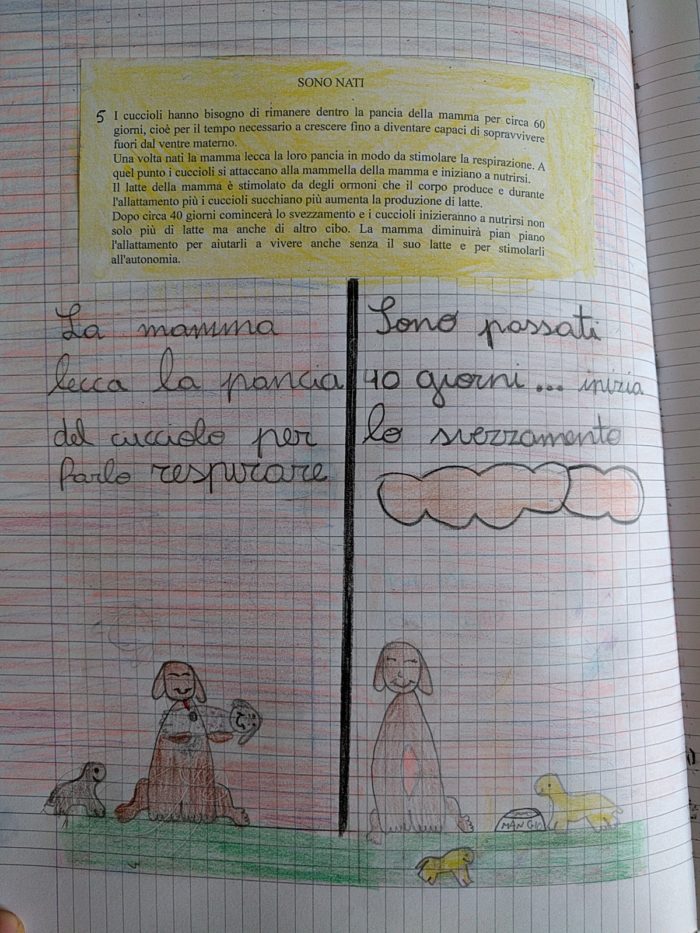 SONO NATI
5 I cuccioli hanno bisogno di rimanere dentro la pancia della mamma per circa 60
giorni, cioè per il tempo necessario a crescere fino a diventare capaci di sopravvivere
fuori dal ventre materno.
Una volta nati la mamma lecca la loro pancia in modo da stimolare la respirazione. A
quel punto i cuccioli si attaccano alla mammella della mamma e iniziano a nutrirsi.
Il latte della mamma è stimolato da degli ormoni che il corpo produce e durante
l'allattamento più i cuccioli succhiano più aumenta la produzione di latte.
Dopo circa 40 giorni comincerà lo svezzamento e i cuccioli inizieranno a nutrirsi non
solo più di latte ma anche di altro cibo. La mamma diminuirà pian piano
l'allattamento per aiutarli a vivere anche senza il suo latte e per stimolarli
all'autonomia.
La mamma
lecca la pancia
del cucciolo per
farlo respirare
Sono passati
40 giorni... inizia
lo svezzamento